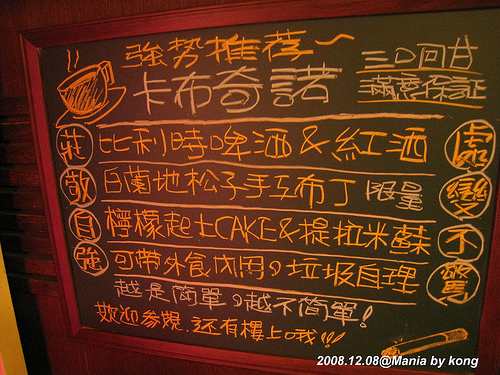 強勢推荐~
三口回甘
卡布奇諾
滿意保証
莊 比利時啤酒&紅酒 處
敬 白蘭地松子手工布丁 限量 變
自 檸檬起士CAKE&提拉米蘇 不
強 可帶外食內用,垃圾自理 驚
越是簡單,越不簡單!
歡迎參觀,還有樓上哦!!!
2008.12.08@Mania by kong